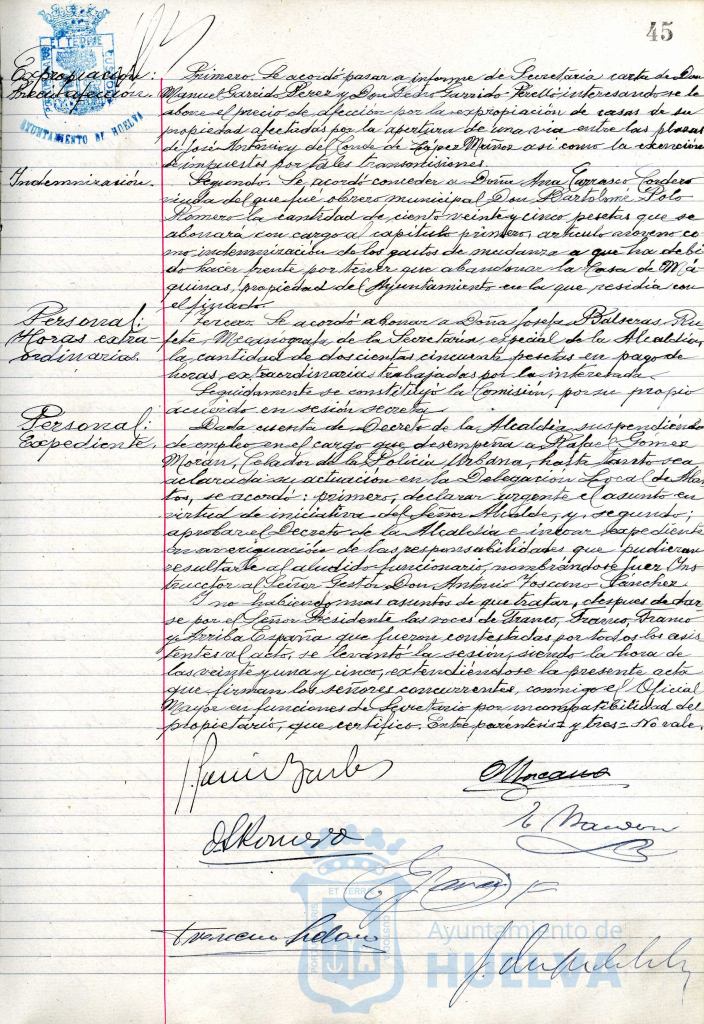 45
Expropiación:
Precio afección.
AYUNTAMIENTO DE HUELVA
Primero. Se acordó pasar a informe de Secretaría carta de Don
Manuel Garrido Perez y Don Pedro Garrido Perelló interesando se le
abone el precio de afección por la expropiación de casas de su
propiedad afectadas por la apertura de una via entre las plazas
de José Antonio y del Conde de López Muñoz asi como la exención
de impuestos por tales transmisiones.
Indemnización.
Segundo. Se acordó conceder a Doña Ana Carrasco Cordero
viuda del que fué obrero municipal Don Bartolome Polo
Romero la cantidad de ciento veinte y cinco pesetas que se
abonará con cargo al capitulo primero, articulo noveno co
mo indemnización de los gastos de mudanza a que ha debi
do hacer frente por tener que abandonar la Casa de Má
quinas, propiedad del Ayuntamiento en la que residia con
el finado.
Personal:
Horas extra-
ordinarias.
Tercero. Se acordó abonar a Doña Josefa Balseras Ru
feté, Mecanografa de la Secretaría especial de la Alcaldía,
la cantidad de doscientas cincuenta pesetas en pago de
horas extraordinarias trabajadas por la interesada.
Seguidamente se constituyó la Comisión, por su propio
acuerdo en sesión secreta
Personal:
Expediente.
Dada cuenta de Decreto de la Alcaldia suspendiendo
de empleo en el cargo que desempeña a Rafael Gomez
Morán, Celador de la Policia Urbana, hasta tanto sea
aclarada su actuación en la Delegacion Local de Abas
tos, se acordó: primero, declarar urgente el asunto en
virtud de iniciativa del Señor Alcalde, y, segundo;
aprobar el Decreto de la Alcaldia e incoar expediente
en averiguación de las responsabilidades que pudieran
resultarle al aludido funcionario, nombrándose Juez Ins
tructor al Señor Gestor Don Antonio Toscano Sánchez.
Y no habiendo mas asuntos de que tratar, despues de dar
se por el Señor Presidente las voces de Franco, Franco, Franco
y Arriba España que fueron contestadas por todos los asis
tentes al acto, se levantó la sesión, siendo la hora de
las veinte y una y cinco, extendiéndose la presente acta
que firman los señores concurrentes, conmigo el Oficial
Mayor en funciones de Secretario por incompatibilidad del
propietario, que certifico. Entre paréntesis= y tres= No vale.
ET TERRIS
Ayuntamiento de
HUELVA